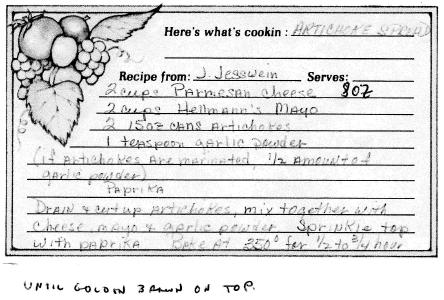 Here's what's cookin: ARTICHOKE SPREAD
Recipe from: J. Jesswein Serves:
2 cups Parmesan cheese 8oz
2 cups Hellmann's Mayo
2 15oz cans Artichokes
1 teaspoon garlic powder
(If Artichokes Are marinated, 1/2 amount of
garlic powder)
Paprika
Drain & cut up Artichokes, mix together with
cheese, mayo & garlic powder Sprinkle top
with paprika Bake At 350° for 1/2 to 3/4 hour
UNTIL GOLDEN BROWN ON TOP.